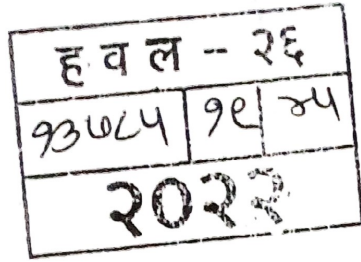 ह व ल -- २६
१३७८५ १९ ४५
२०२२